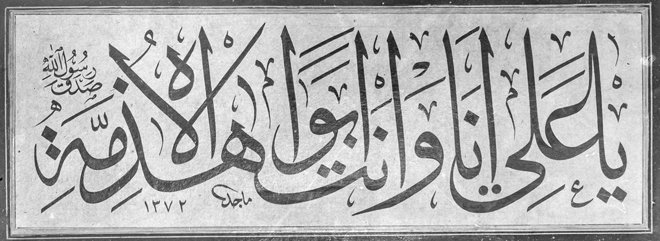 يا عَلِي اَنَا وَاَنْتَ اَبَوَا هٰذِهِ الاُمَّةِ
صَدَقَ رَسُولُ اللّٰه
ماجد ١٣٧٢